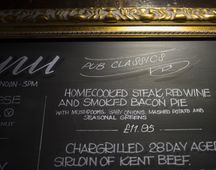 nu
NOON-3PM
PUB CLASSICS
HOMECOOKED STEAK, RED WINE
AND SMOKED BACON PIE
WITH MUSHROOMS, BABY ONIONS, MASHED POTATO AND
SEASONAL GREENS
£11.95
CHARGRILLED 28 DAY AGED
SIRLOIN OF KENT BEEF.